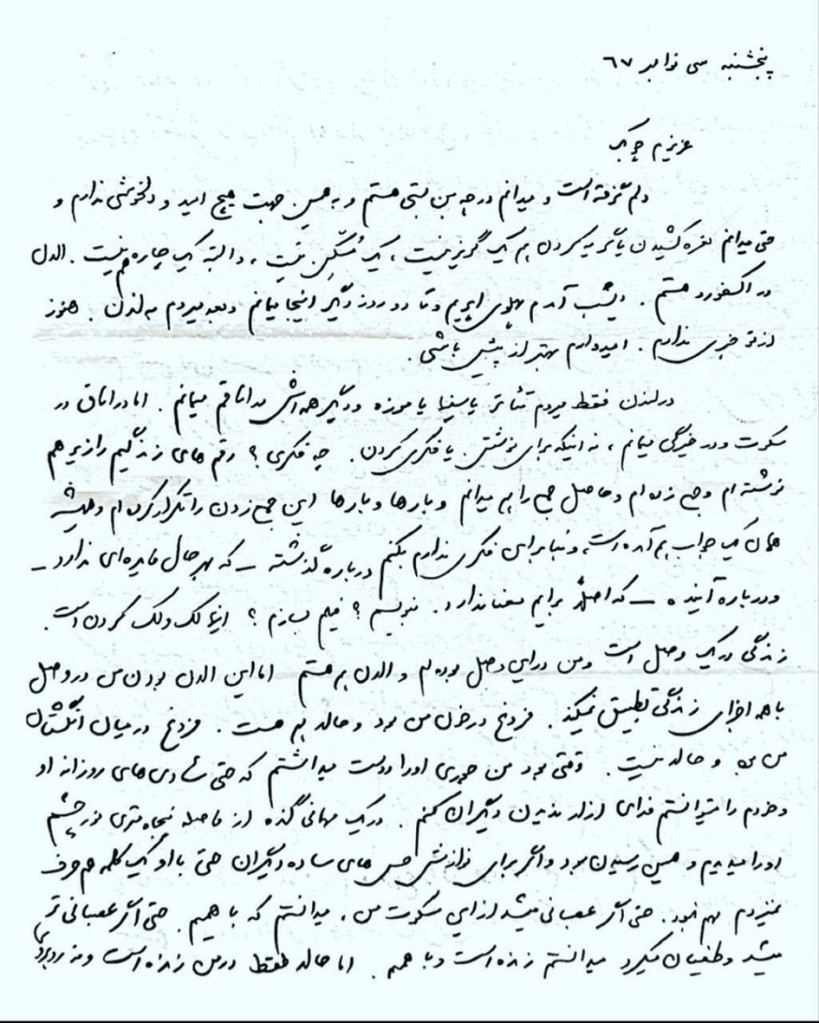 پنجشنبه سی نوامبر ۶۷
عزیزم چوبک
دلم گرفته است و میدانم در چه بن بستی هستم و به همین جهت هیچ امید و دلخوشی ندارم و
حتی میدانم نعره کشیدن یا گریه کردن هم یک گریز نیست، یک مُسَکِّن نیست، و البته یک چاره هم نیست. الان
در اکسفورد هستم. دیشب آمدم پهلوی و تا دو روز دیگر اینجا میمانم و بعد میروم به لندن. هنوز
از تو خبری ندارم. امیدوارم بهتر از پیش باشی.
در لندن فقط میروم تئاتر یا سینما یا موزه و دیگر همه‌اش در اتاقم میمانم. اما در اتاق در
سکوت و در خیرگی میمانم، نه اینکه برای نوشتن یا فکری کردن. چه فکری؟ رقم های زندگیم را زیر هم
نوشته‌ام و جمع زده‌ام و حاصل جمع را هم میدانم و بارها و بارها این جمع زدن را تکرار کرده‌ام و همیشه
همان یک جواب هم آمده است، و بنابراین فکری ندارم بکنم درباره گذشته ـ که بهر حال فایده‌ای ندارد ـ
و درباره آینده ـ که اصلاً برایم معنا ندارد. بنویسم؟ فیلم بسازم؟ اینها لک و لک کردن است.
زندگی در یک وصل است و من در این وصل بوده‌ام و الان هم هستم اما این الان بودن من در وصل
با همه اجزای زندگی تطبیق نمیکند. فروغ در خون من بود و حالا هم هست. فروغ در میان انگشتان
من بود و حالا نیست. وقتی بود من جوری او را دوست میداشتم که حتی شادی های روزانه او
و خودم را میتوانستم فدای نیازردن دیگران کنم. در یک مهمانی گنده از فاصله پنجاه متری نور چشم
او را میدیدم و همین رسیدن بود و اگر برای نوازش حس های ساده دیگران حتی با او یک کلمه هم حرف
نمیزدم مهم نبود. حتی اگر عصبانی میشد از این سکوت من، میدانستم که با همیم. حتی اگر عصبانی تر
میشد و طغیان میکرد میدانستم زنده است و با همیم. اما حالا فقط در من زنده است و